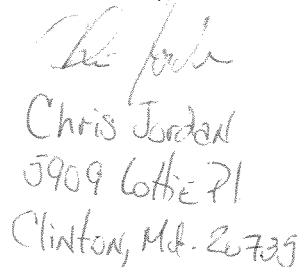 Chris Jordan
Chris Jordan
5909 Lottie Pl
Clinton, Md. 20735